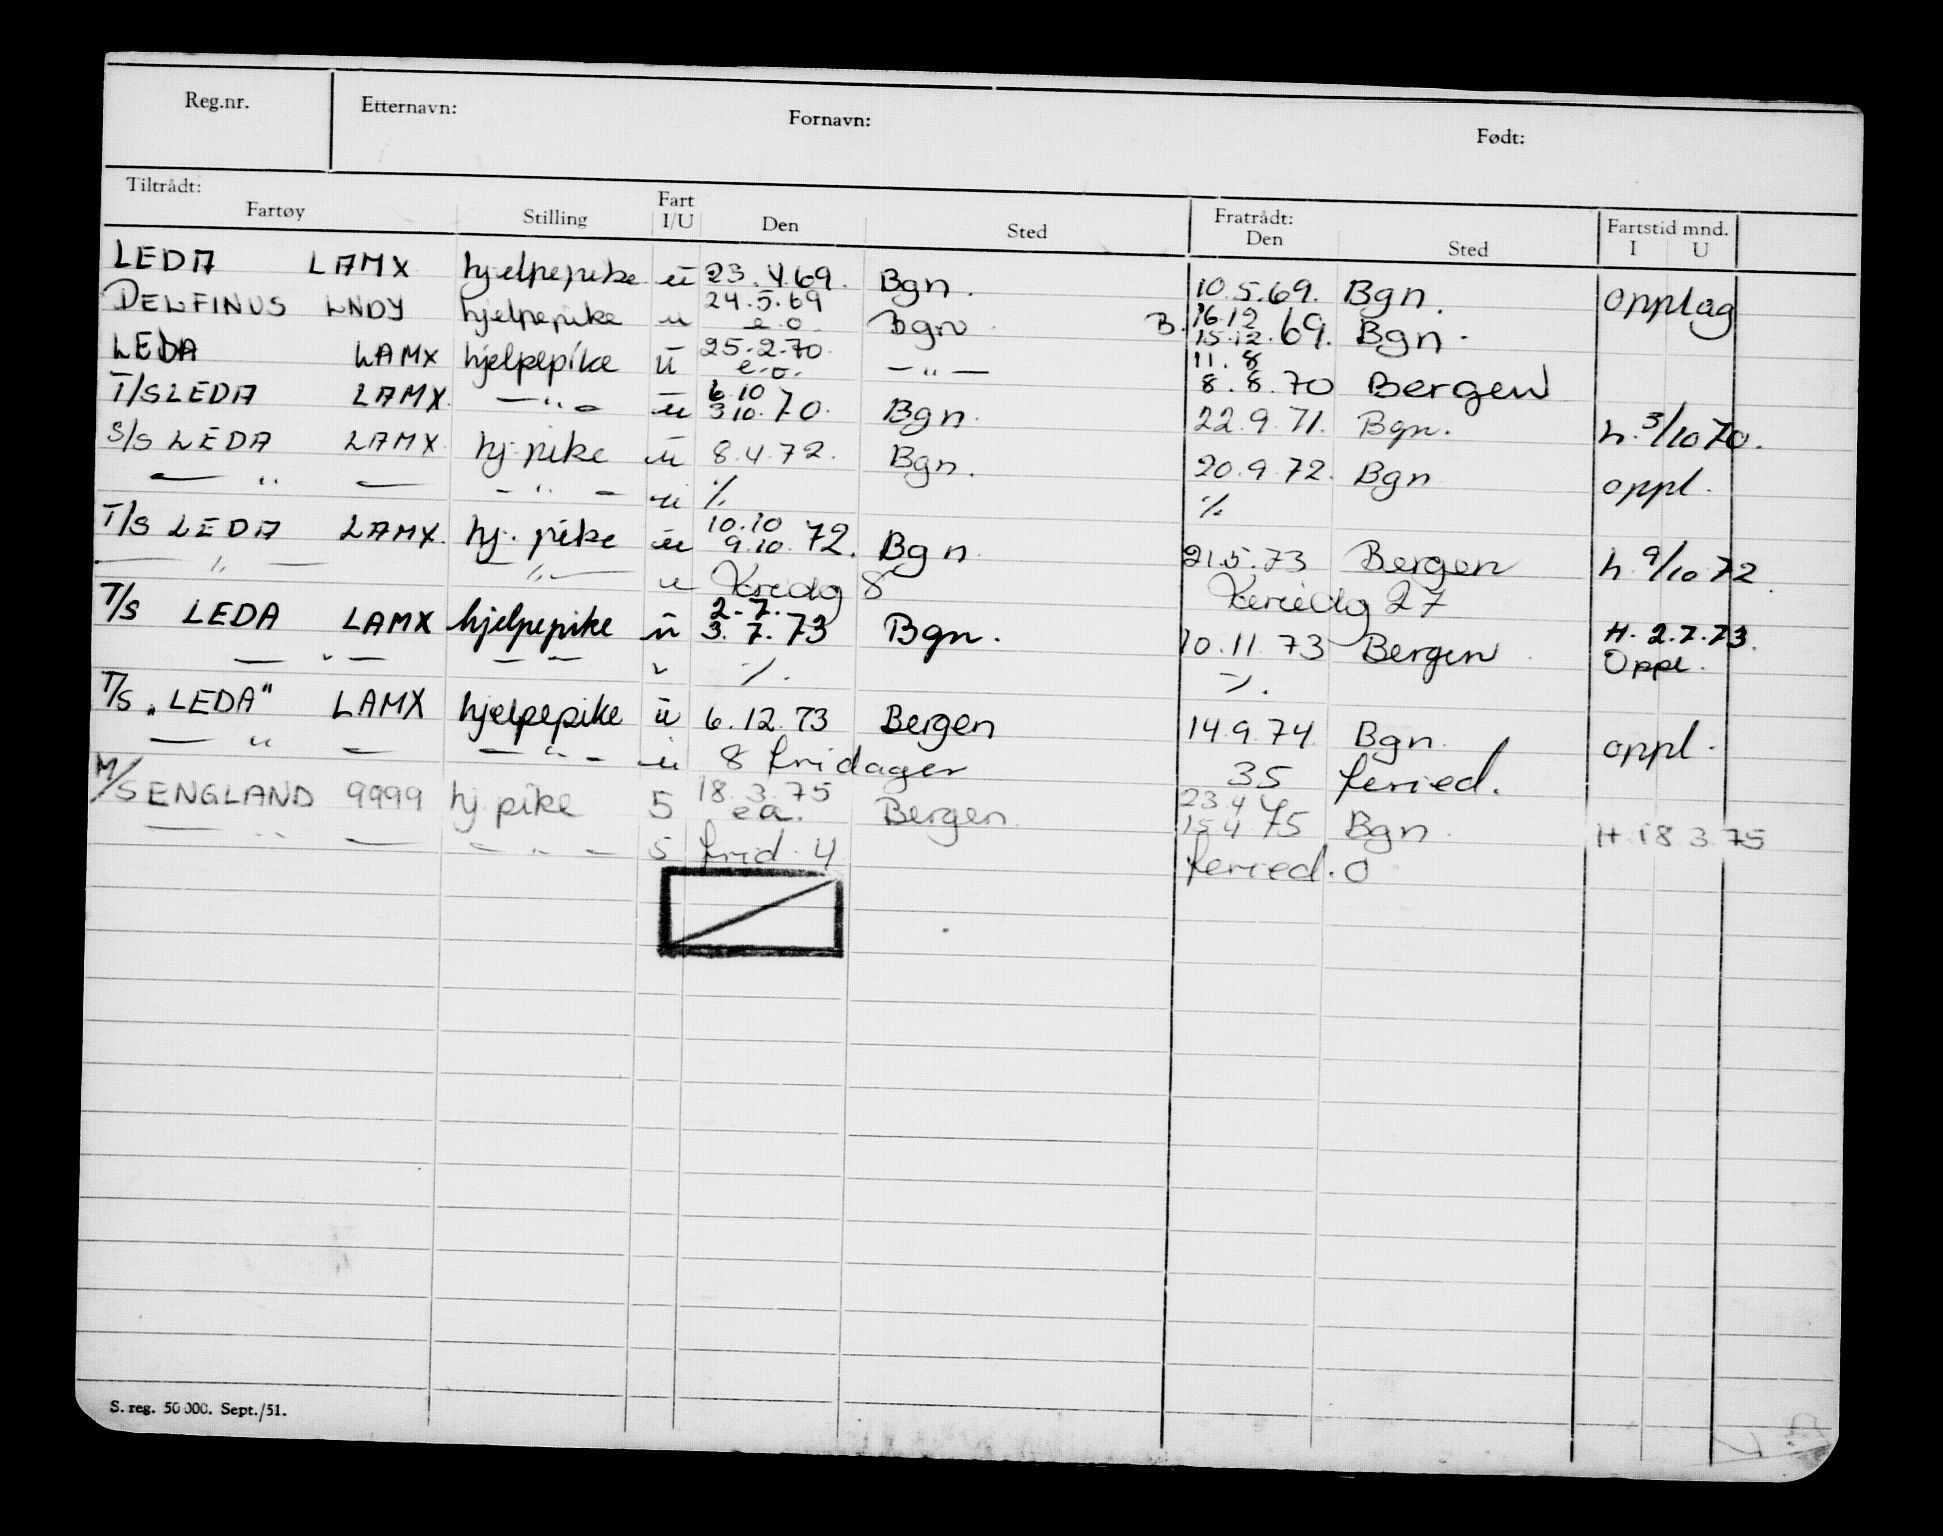 Reg.nr. Etternavn: Fornavn: Født:
Tiltrådt: Fartøy Stilling Fart I/U Den Sted Fratrådt: Den Sted Fartstid mnd. I U
LEDA LAMX hjelpepike u 23.4.69. Bgn. 10.5.69. Bgn. opplag
DELFINUS LNDY hjelpepike u 24.5.69 e.o. Bgn B. 16.12 15.12.69. Bgn.
LEDA LAMX hjelpepike u 25.2.70. e.o. — " — 11.8 8.8.70 Bergen
T/S LEDA LAMX. — " — u 6.10 3 10.70. Bgn. 22.9.71. Bgn. h. 3/10 70.
S/S LEDA LAMX. hj. pike u 8.4.72. Bgn. 20.9.72. Bgn oppl.
— " — — " — u ./. ./.
T/S LEDA LAMX. hj. pike u 10.10 9.10.72. Bgn. 21.5.73 Bergen h. 9/10 72
— " — — " — u fridg 8 feriedg 27
T/S LEDA LAMX hjelpepike u 2.7. 3.7.73 Bgn. 10.11.73 Bergen H. 2.7.73. Oppl.
— " — — — " ./. ./.
T/S "LEDA" LAMX hjelpepike u 6.12.73 Bergen 14.9.74. Bgn. oppl.
— " — — " — u 8 fridager 35 feried.
M/S ENGLAND 9999 hj. pike 5 18.3.75 ea. Bergen 23.4 15.4 75 Bgn. H. 18.3.75
— " — — " — 5 frid. 4 feried. 0
S. reg. 50 000. Sept./51.